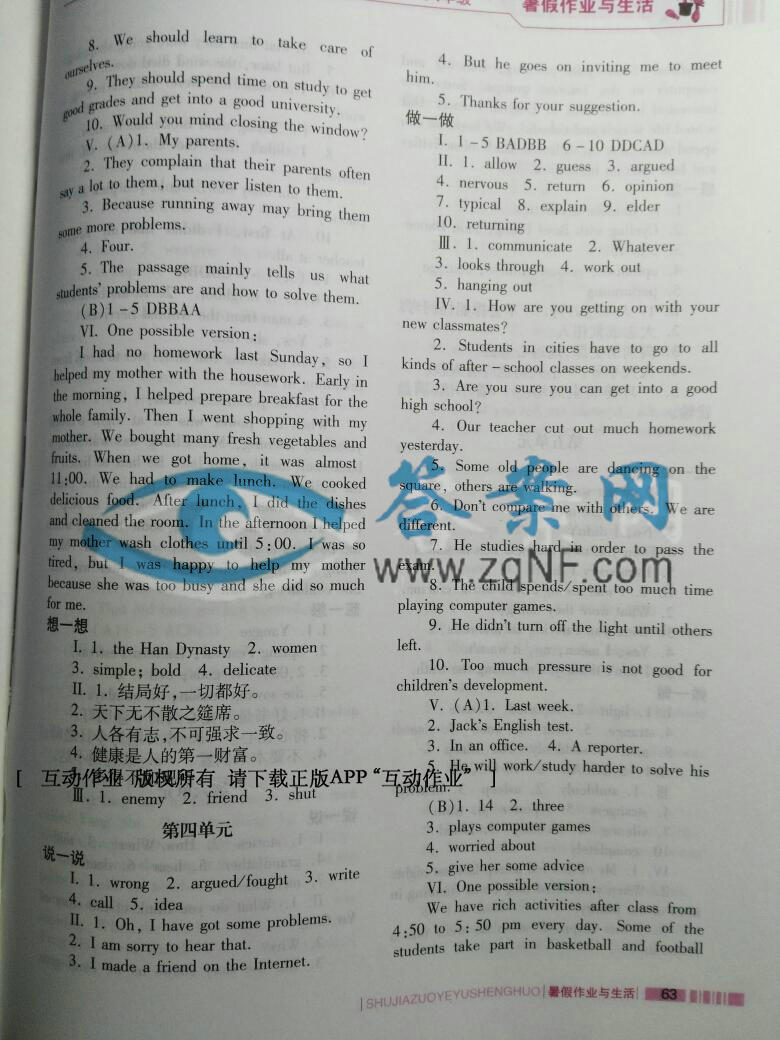 暑假作业与生活
8. We should learn to take care of
ourselves.
9. They should spend time on study to get
good grades and get into a good university.
10. Would you mind closing the window?
V. (A)1. My parents.
2. They complain that their parents often
say a lot to them, but never listen to them.
3. Because running away may bring them
some more problems.
4. Four.
5. The passage mainly tells us what
students' problems are and how to solve them.
(B)1-5 DBBAA
VI. One possible version:
I had no homework last Sunday, so I
helped my mother with the housework. Early in
the morning, I helped prepare breakfast for the
whole family. Then I went shopping with my
mother. We bought many fresh vegetables and
fruits. When we got home, it was almost
11:00. We had to make lunch. We cooked
delicious food. After lunch, I did the dishes
and cleaned the room. In the afternoon I helped
my mother wash clothes until 5:00. I was so
tired, but I was happy to help my mother
because she was too busy and she did so much
for me.
想一想
I. 1. the Han Dynasty 2. women
3. simple; bold 4. delicate
II. 1. 结局好,一切都好。
2. 天下无不散之筵席。
3. 人各有志,不可强求一致。
4. 健康是人的第一财富。
[ 互动作业 版权所有 请下载正版APP“互动作业” ]
III. 1. enemy 2. friend 3. shut
第四单元
说一说
I. 1. wrong 2. argued/fought 3. write
4. call 5. idea
II. 1. Oh, I have got some problems.
2. I am sorry to hear that.
3. I made a friend on the Internet.
4. But he goes on inviting me to meet
him.
5. Thanks for your suggestion.
做一做
I. 1-5 BADBB 6-10 DDCAD
II. 1. allow 2. guess 3. argued
4. nervous 5. return 6. opinion
7. typical 8. explain 9. elder
10. returning
III. 1. communicate 2. Whatever
3. looks through 4. work out
5. hanging out
IV. 1. How are you getting on with your
new classmates?
2. Students in cities have to go to all
kinds of after-school classes on weekends.
3. Are you sure you can get into a good
high school?
4. Our teacher cut out much homework
yesterday.
5. Some old people are dancing on the
square, others are walking.
6. Don't compare me with others. We are
different.
7. He studies hard in order to pass the
exam.
8. The child spends/spent too much time
playing computer games.
9. He didn't turn off the light until others
left.
10. Too much pressure is not good for
children's development.
V. (A)1. Last week.
2. Jack's English test.
3. In an office. 4. A reporter.
5. He will work/study harder to solve his
problem.
(B)1. 14 2. three
3. plays computer games
4. worried about
5. give her some advice
VI. One possible version:
We have rich activities after class from
4:50 to 5:50 pm every day. Some of the
students take part in basketball and football
答案网
www.zqNF.com
SHUJIAZUOYEYUSHENGHUO 暑假作业与生活 63